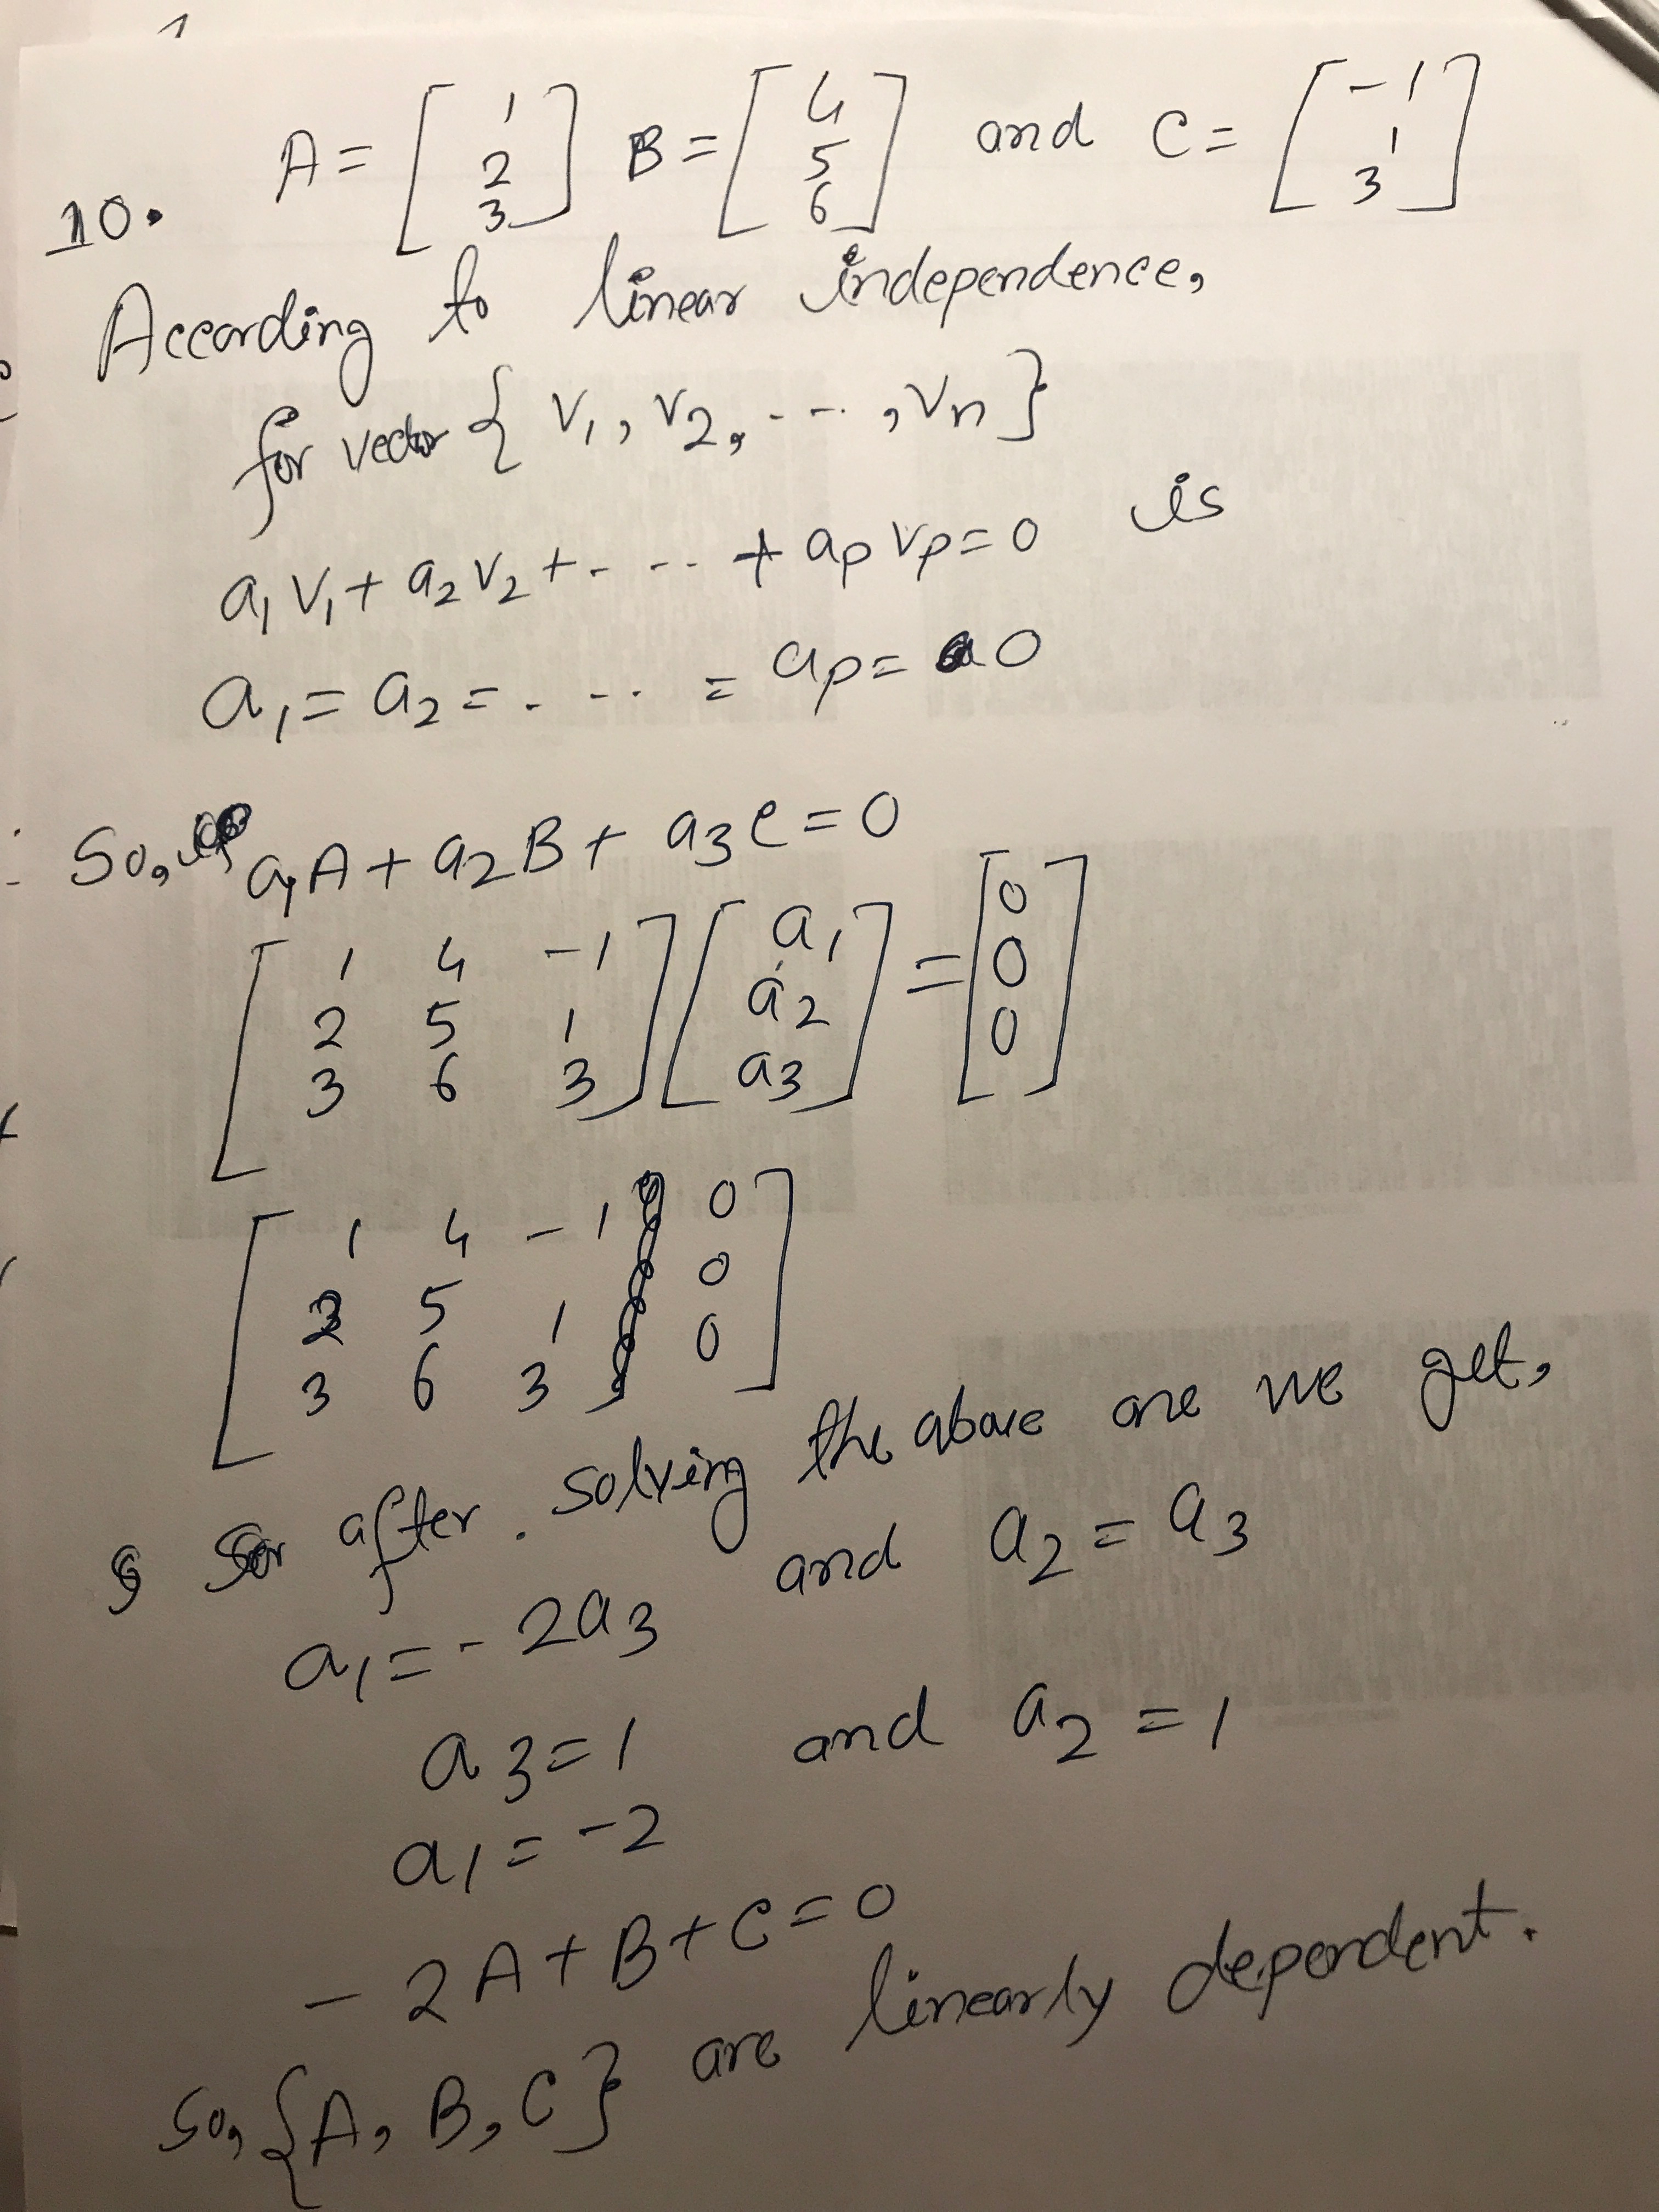 1
10. A = [1 2 3] B = [4 5 6] and C = [-1 1 3]
According to linear independence,
for vector { v1, v2, - -- , vn }
a1 v1 + a2 v2 + - -- + ap vp = 0 is
a1 = a2 = - -- = ap = 0
So, a1A + a2B + a3C = 0
[1 4 -1] [a1] = [0]
[2 5 1] [a2] [0]
[3 6 3] [a3] [0]
[1 4 -1 0]
[2 5 1 0]
[3 6 3 0]
after solving the above one we get,
a1 = -2a3 and a2 = a3
a3 = 1 and a2 = 1
a1 = -2
-2A + B + C = 0
So, {A, B, C} are linearly dependent.